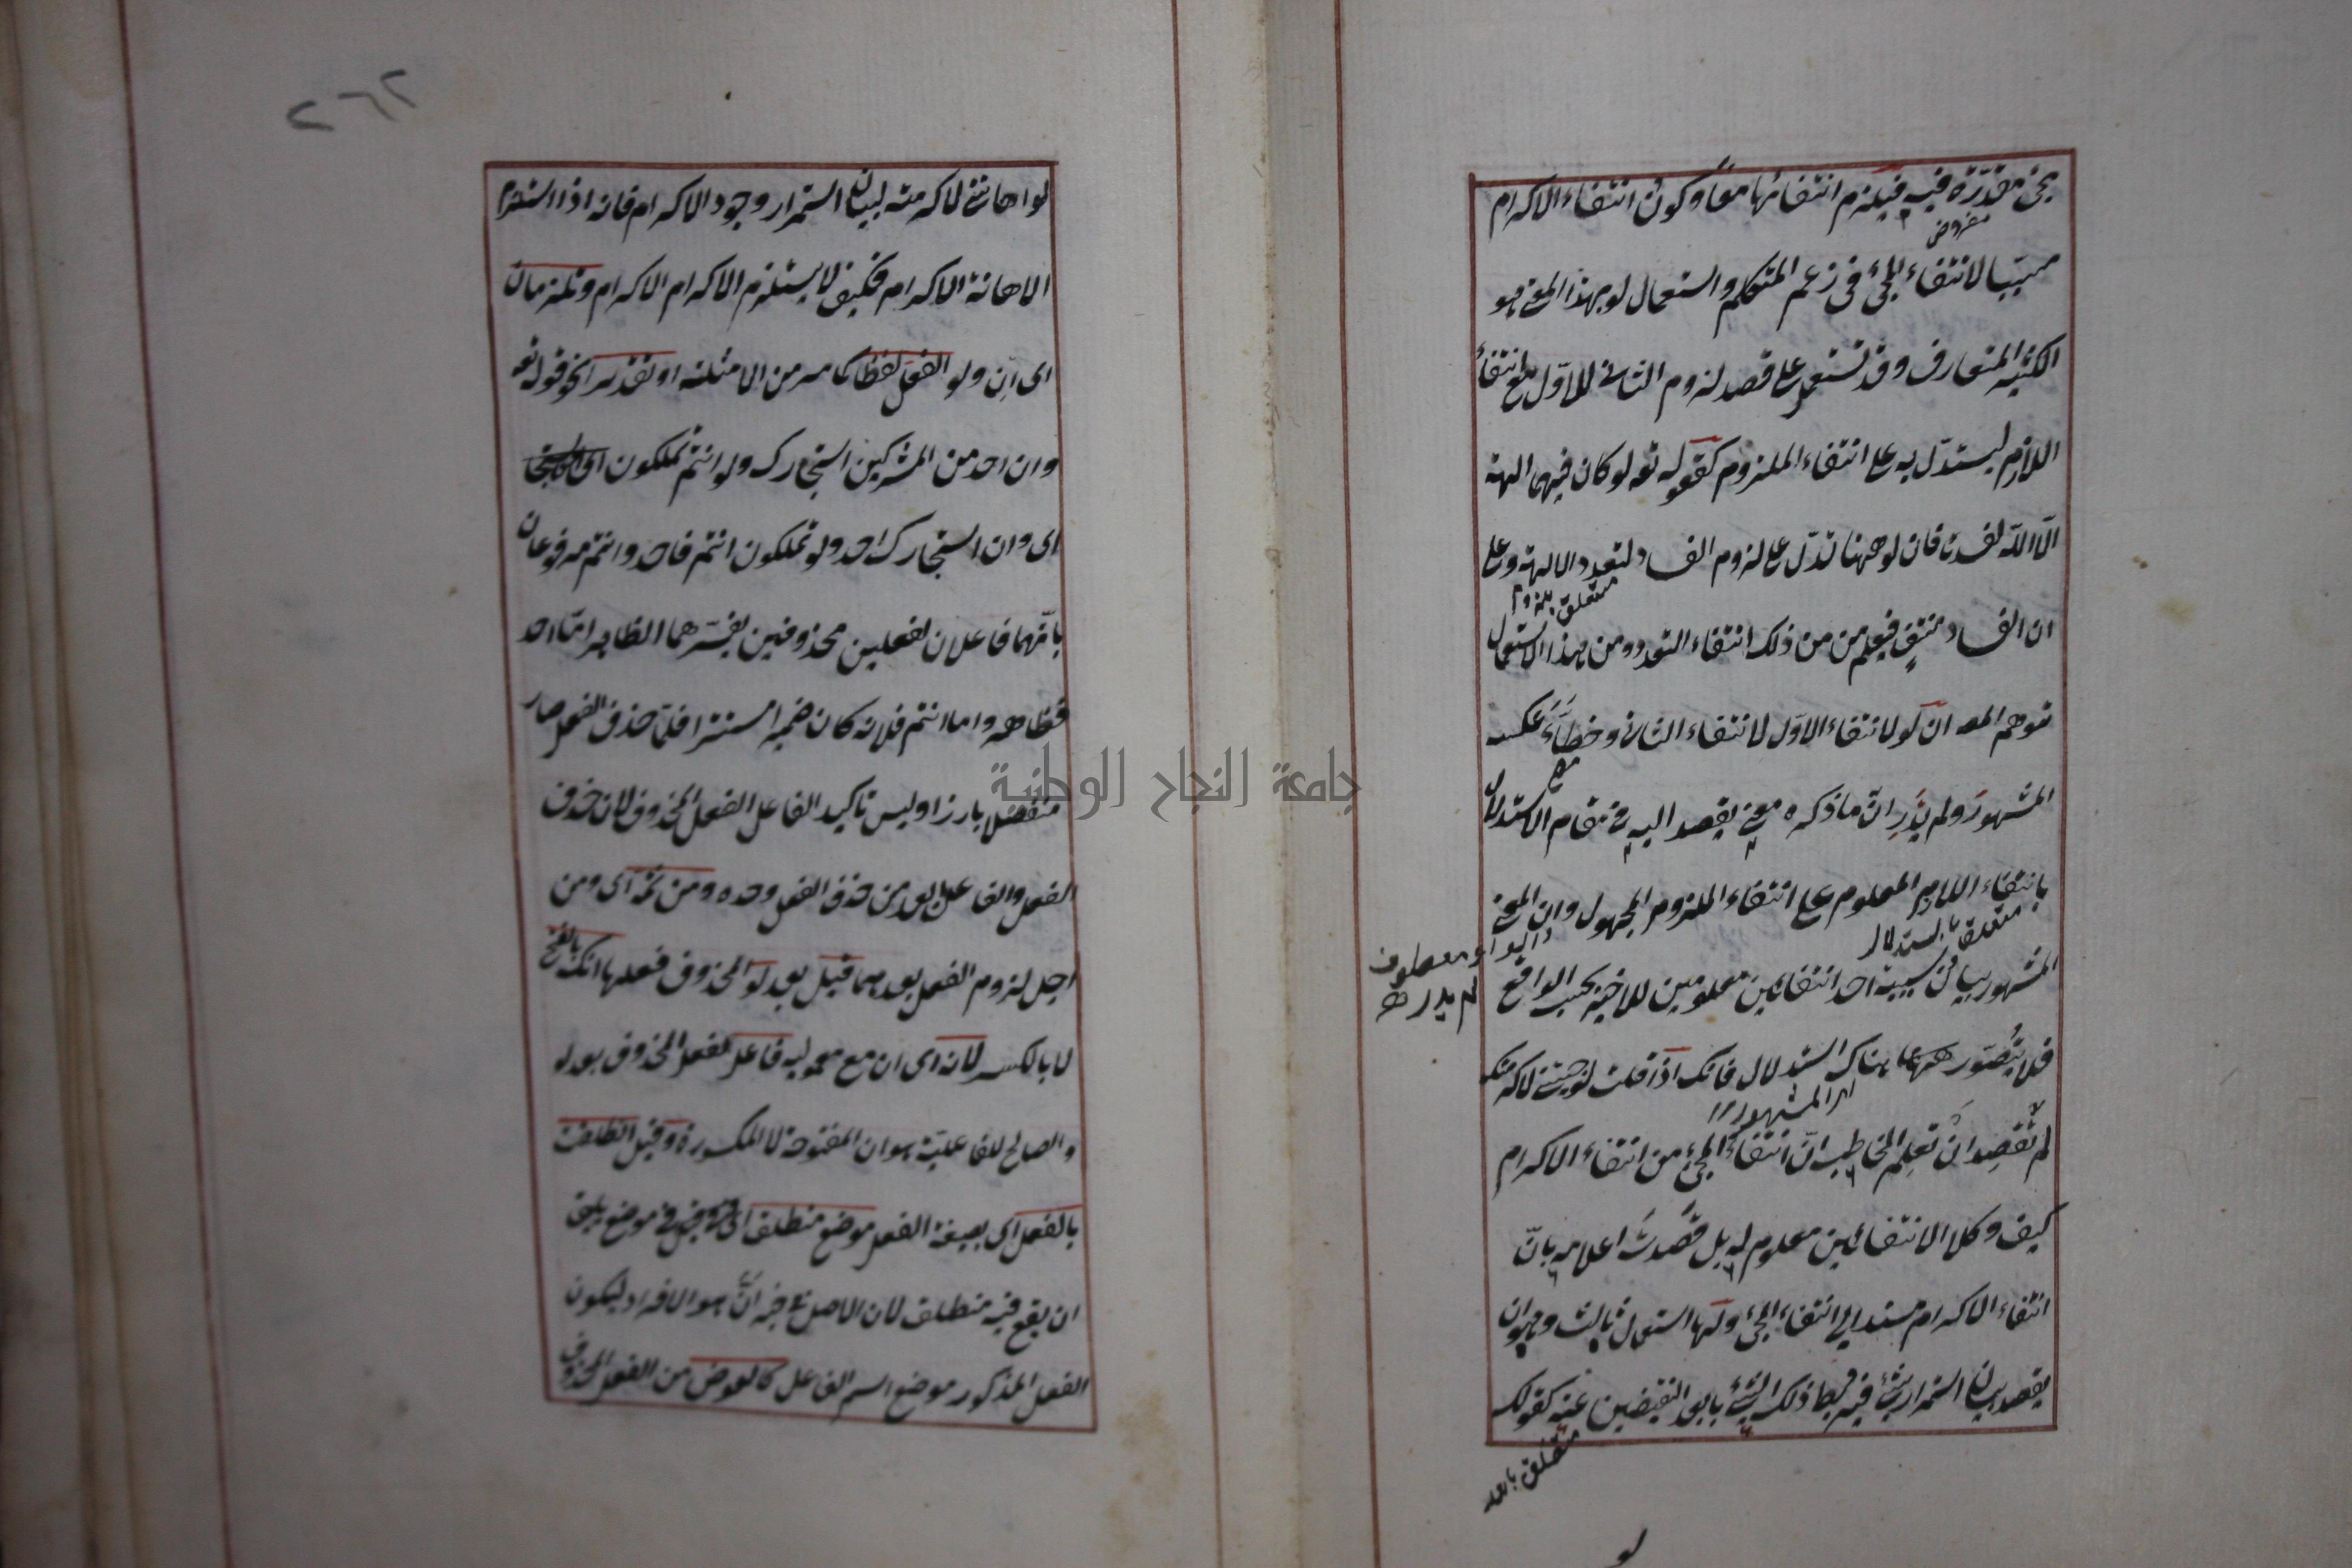 مجئ مقدرة فيه فيلزم انتفائها معا وكون انتفاء الاكرام
مفروض
مسببا لانتفاء المجئ فى زعم المتكلم واستعمال لو بهذا المعنى هو
الكثير المتعارف وقد تستعمل على قصد لزوم الثانى للاول مع انتفاء
اللازم ليستدل به على انتفاء الملزوم كقوله تعه لو كان فيهما الهة
الا الله لفسدتا فان لو ههنا تدل على لزوم الفساد لتعدد الالهة وعلى
متعلق بلزوم
ان الفساد منتف فيعلم من ذلك انتفاء التعدد ومن هذا الاستعمال
توهم المصه ان لو لانتفاء الاول لانتفاء الثانى وخطّاء عكسه
المشهور ولم يَدْرِ ان ما ذكره معنى يقصد اليه فى مقام الاستدلال
بانتفاء اللازم المعلوم على انتفاء الملزوم المجهول وان المعنى
متعلق باستدلال
المشهور بيان سببية احد انتفائين معلومين للاخر بحسب الواقع
فلا يُتصوّر هناك استدلال فانك اذا قلت لو جئتنى لاكرمتك
اى المشهور
لم تَقصِد ان تُعلِم المخاطب انّ انتفاء المجئ من انتفاء الاكرام
كيف وكلا الانتفائين معلوم له بل قصدتَ اعلامه بانّ
انتفاء الاكرام مستند الى انتفاء المجئ ولها استعمال ثالث وهو ان
يقصد بيان استمرار شئ فيربط ذلك الشئ بابعد النقيضين عنه كقولك
متعلق بابعد
لو
٢٦٢
لو اهاننى لاكرمته لبيان استمرار وجود الاكرام فانه اذا استلزم
الاهانة الاكرام فكيف لا يستلزم الاكرام الاكرام وتلزمان
اى اِن ولو الفعل لفظا كما مر من الامثلة او تقديرا نحو قوله تعه
وان احد من المشركين استجارك ولو انتم تملكون
اى وان استجارك احد ولو تملكون انتم فاحد وانتم مرفوعان
بانّهما فاعلان لفعلين محذوفين يفسّرهما الظاهر امّا احد
فظاهر واما انتم فلانه كان ضميرا مستترا فلمّا حذف الفعل صار
منفصلا بارزا وليس تاكيد الفاعل الفعل المحذوف لان حذف
الفعل والفاعل ابعد من حذف الفعل وحده ومن ثمه اى ومن
اجل لزوم الفعل بعدهما قيل بعد لو المحذوف فعلها انك بالفتح
لا بالكسر لانه اى ان مع معموليه فاعل لفعل المحذوف بعد لو
والصالح للفاعلية هو ان المفتوحة لا المكسورة وقيل انطلقت
بالفعل اى بصيغة الفعل موضع منطلق اى فى موضع يليق
ان يقع فيه منطلق لان الاصل فى خبر انّ هو الافراد ليكون
الفعل المذكور موضع اسم الفاعل كالعوض من الفعل المحذوف
جامعة النجاح الوطنية